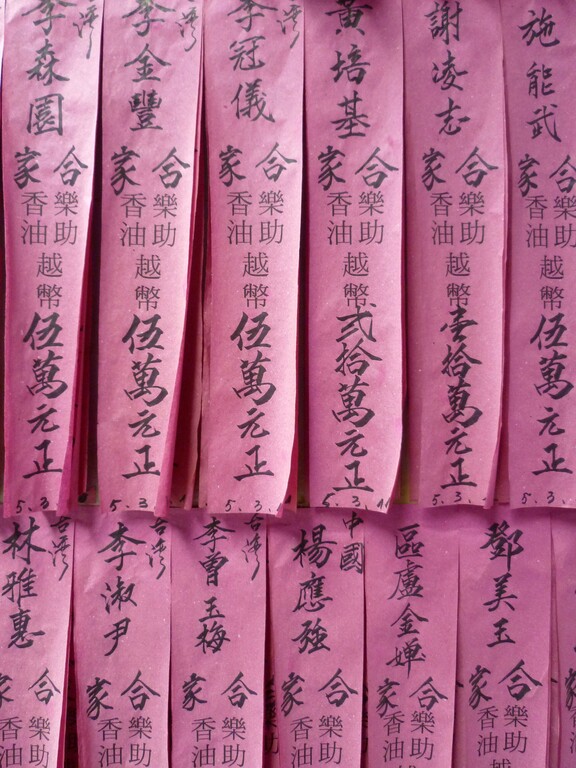 台灣
李森園
合家
樂助
香油
越幣
伍萬元正
5.3.
台灣
李金豐
合家
樂助
香油
越幣
伍萬元正
5.3
李冠儀
合家
樂助
香油
越幣
伍萬元正
5.3.
黃培基
合家
樂助
香油
越幣
弍拾萬元正
5.3.
謝凌志
合家
樂助
香油
越幣
壹拾萬元正
5.3.
施能武
合家
樂助
香油
越幣
伍萬元正
5.3.
台灣
林雅惠
合家
樂助
香油
台灣
李淑尹
合家
樂助
香油
台灣
李曾玉梅
合家
樂助
香油
中國
楊應強
合家
樂助
香油
區盧金嬋
合家
樂助
香油
鄧美玉
合家
樂助
香油
越